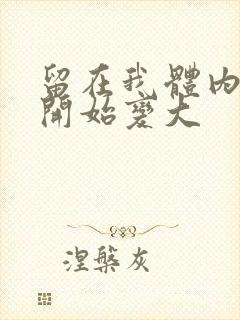 留在我體內
開始變大
涅槃灰